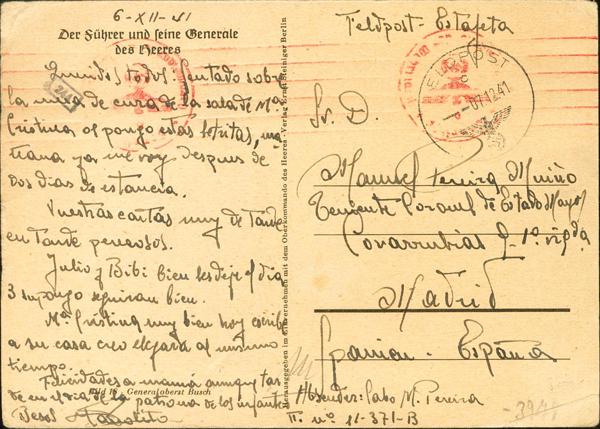 6-XII-41
Der Führer und seine Generale
des Heeres
Queridos todos: Sentado sobre
la mesa de cura de la sala de Mª
Cristina os pongo estas letritas, ma
ñana ya me voy despues de
dos dias de estancia.
Vuestras cartas muy de tarde
en tarde
Julio y Bibi bien les deje el dia
3 supongo seguiran bien.
Mª Cristina muy bien hoy escribe
a su casa creo llegará al mismo
tiempo.
Felicidades a mamá aunque tar
de en el dia de la patrona de los infantes
Bild 16 Generaloberst Busch
Besos
Herausgegeben im Einvernehmen mit dem Oberkommando des Heeres - Verlag Ernst Steiniger Berlin
Feldpost - Estafeta
FELDPOST
-7.12.41
Sr. D.
Manuel Pereira Muiño
Teniente Coronel de Estado Mayor
Covarrubias 9-1º izqda
Madrid
Spanien - España
Absender: Cabo M. Pereira
F. nº 11-371-B